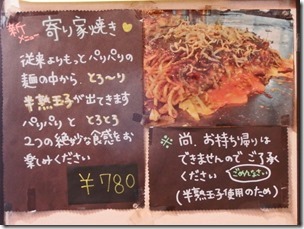 新メニュー 寄り家焼き
従来よりもっとパリパリの
麺の中から、とろ〜り
半熟玉子が出てきます
パリパリと とろとろ
2つの絶妙な食感をお
楽しみください
¥780
※ 尚、お持ち帰りは
できませんので ご了承
ください ごめんなさい
(半熟玉子使用のため)